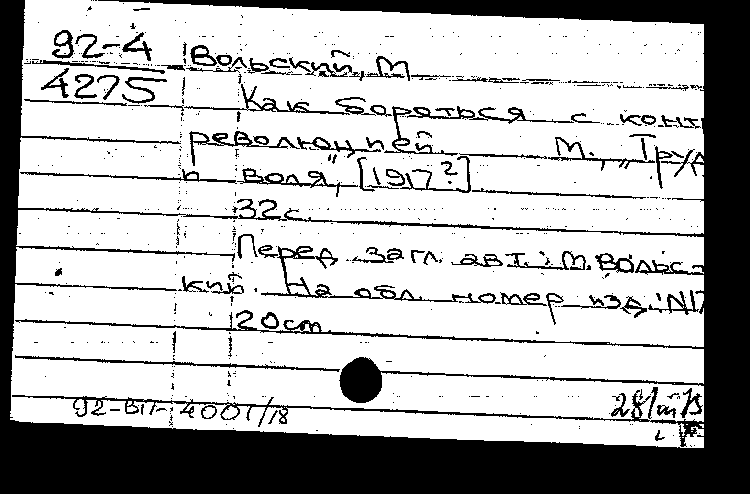 92-4
4275
Вольский, М
Как бороться с конт
революцией. М., „Труд
и воля", [1917?].
32с.
Перед загл. авт.: М. Вольс-
кий. На обл. номер изд.: N17
20см.
92-ВП-4001/18